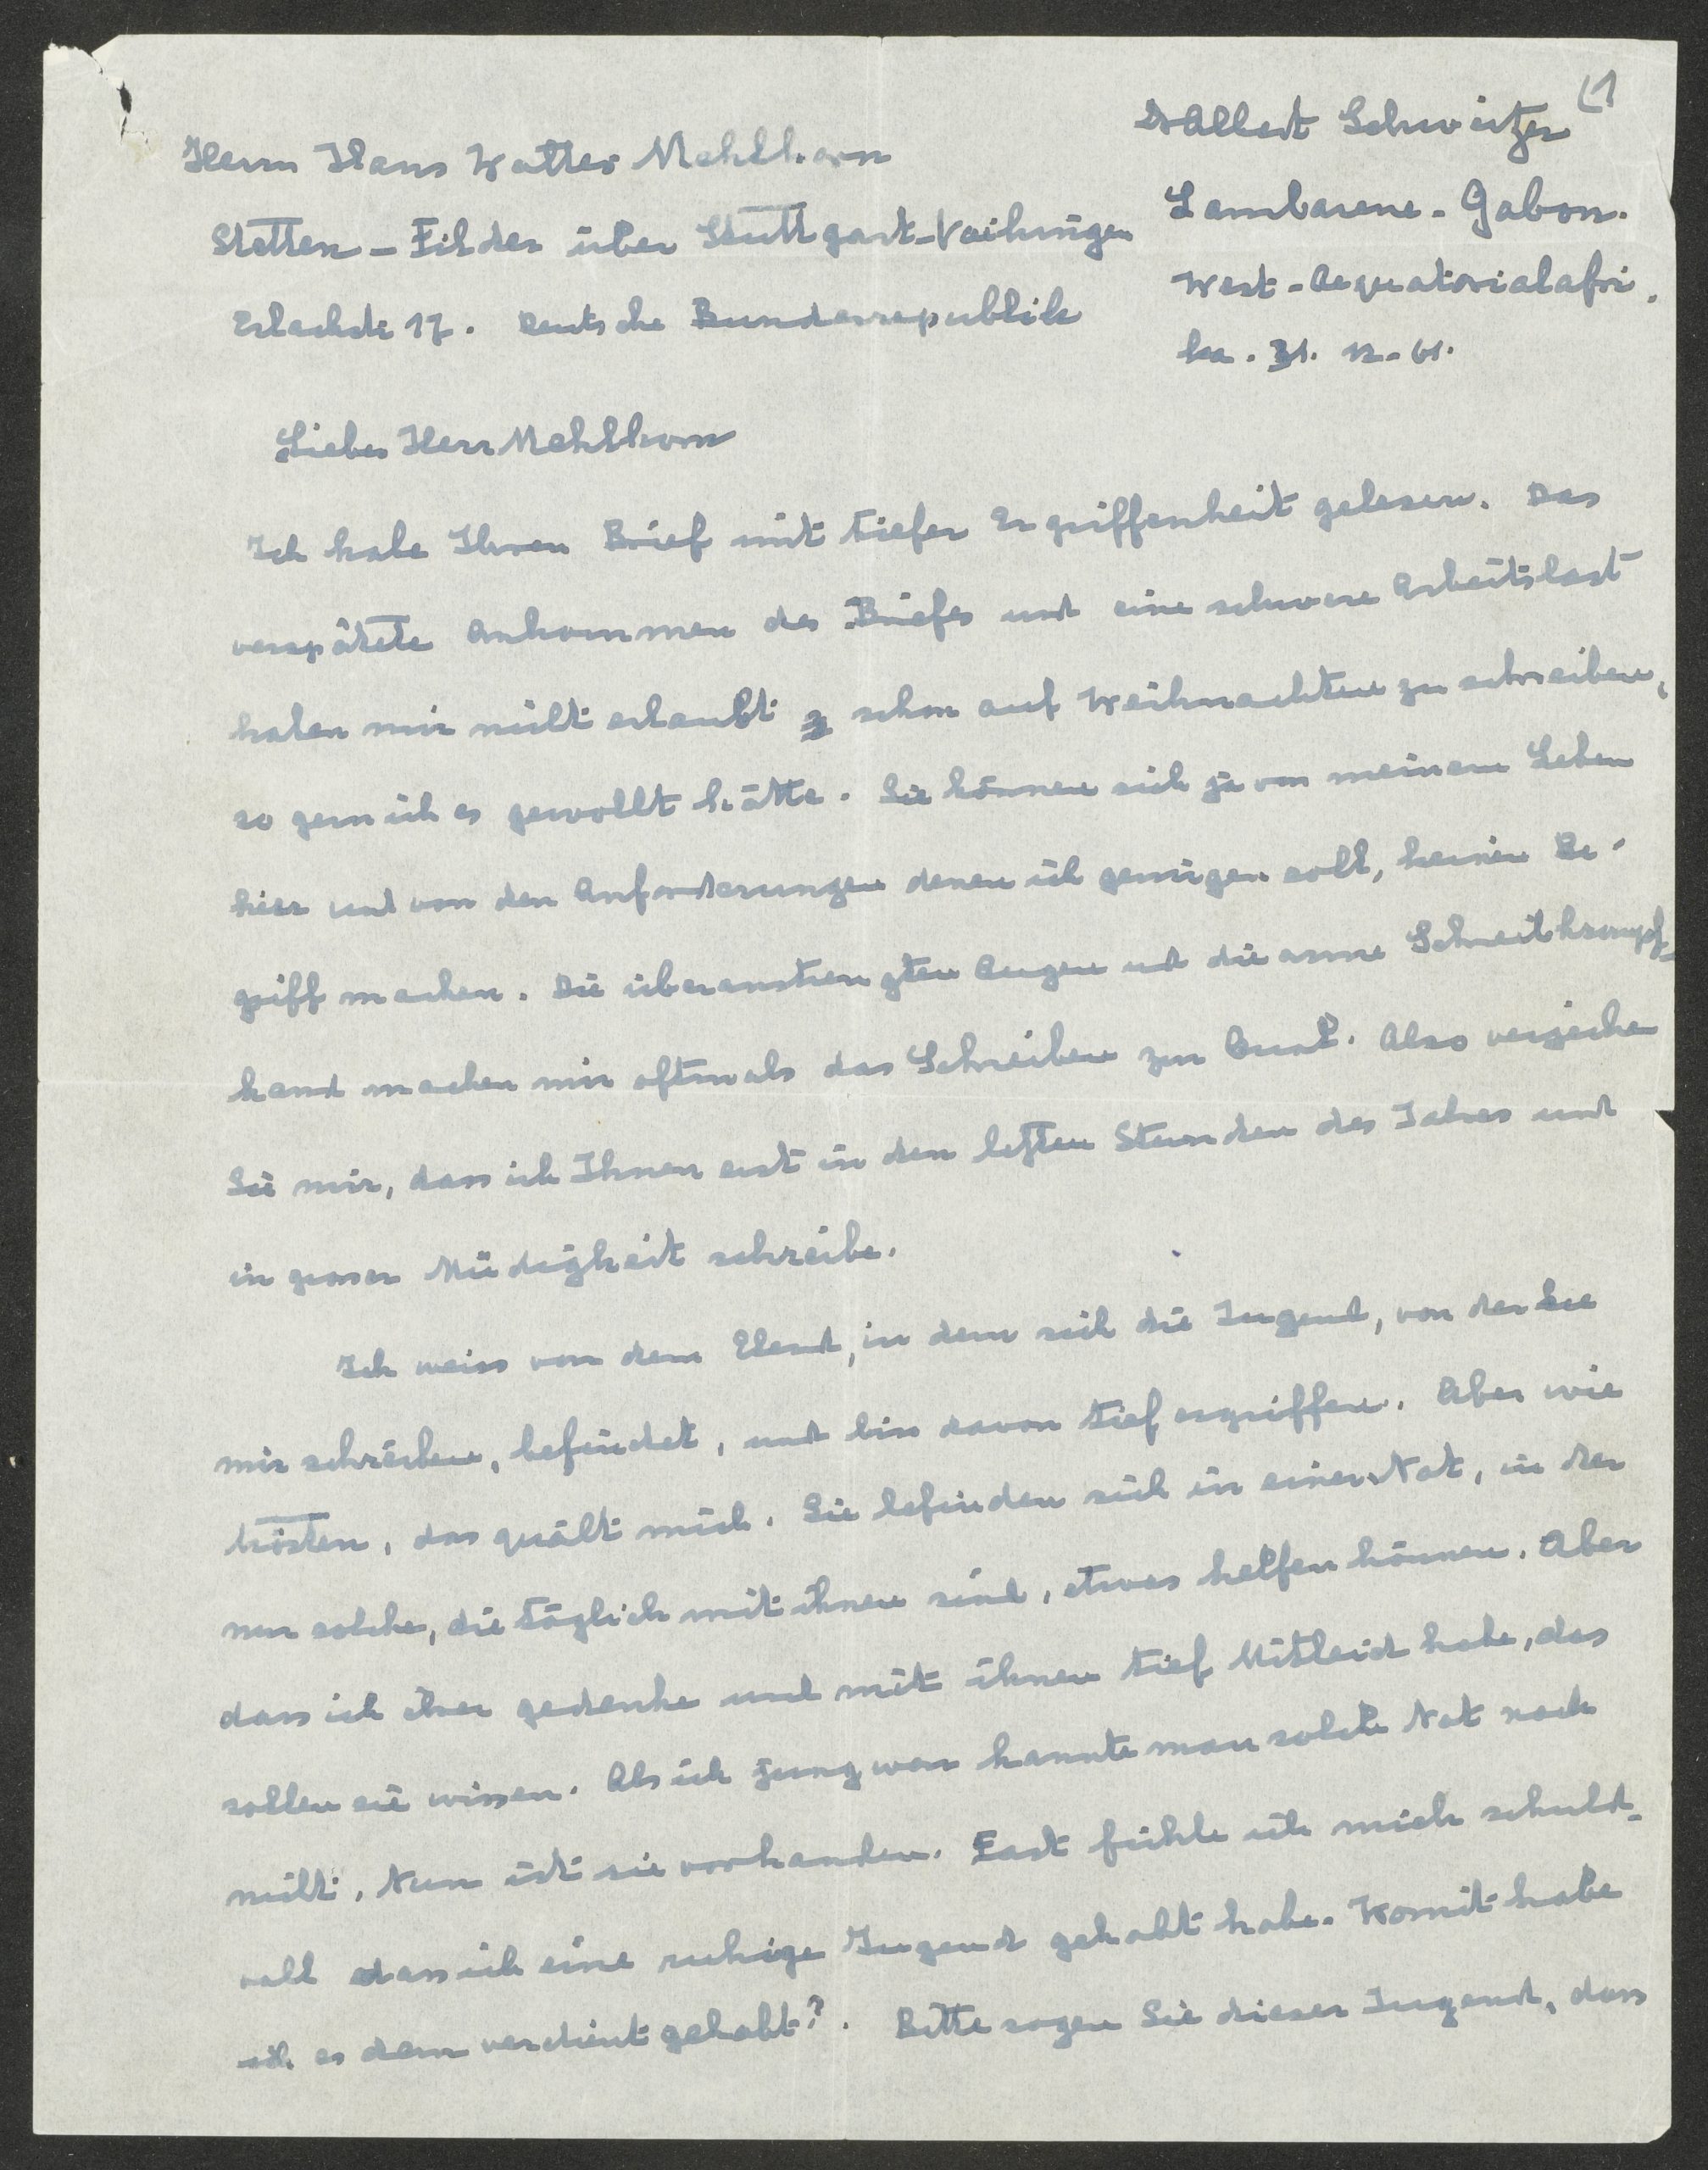 (1
Dr Albert Schweitzer
Lambarene - Gabon.
West-Aequatorialafri-
ka. 31. 12-61.
Herrn Hans Walter Mehlhorn
Stetten - Filder über Stuttgart-Vaihingen
17. Deutsche Bundesrepublik
Lieber Herr Mehlhorn
Ich habe Ihren Brief mit tiefer Ergriffenheit gelesen. Das
verspätete Ankommen des Briefes und eine schwere Arbeitslast
haben mir nicht erlaubt schon auf Weihnachten zu schreiben,
so gern ich es gewollt hätte. Sie können sich ja von meinem Leben
hier und von den Anforderungen denen ich genügen soll, keinen Be-
griff machen. Die überanstrengten Augen und die arme Schreibkrampf-
hand machen mir oftmals das Schreiben zur Qual. Also verzeihen
Sie mir, dass ich Ihnen erst in den letzten Stunden des Jahres und
in grosser Müdigkeit schreibe.
Ich weiss von dem Elend, in dem sich die Jugend, von der Sie
mir schreiben, befindet, und bin davon tief ergriffen. Aber wie
trösten, das quält mich. Sie befinden sich in einer Not, in der
nur solche, die täglich mit ihnen sind, etwas helfen können. Aber
dass ich ihrer gedenke und mit ihnen tief Mitleid habe, das
sollen sie wissen. Als ich jung war kannte man solche Not noch
nicht. Nun ist sie vorhanden. Fast fühle ich mich schuld-
voll dass ich eine ruhige Jugend gehabt habe. Womit habe
ich es denn verdient gehabt?. Bitte sagen Sie dieser Jugend, dass